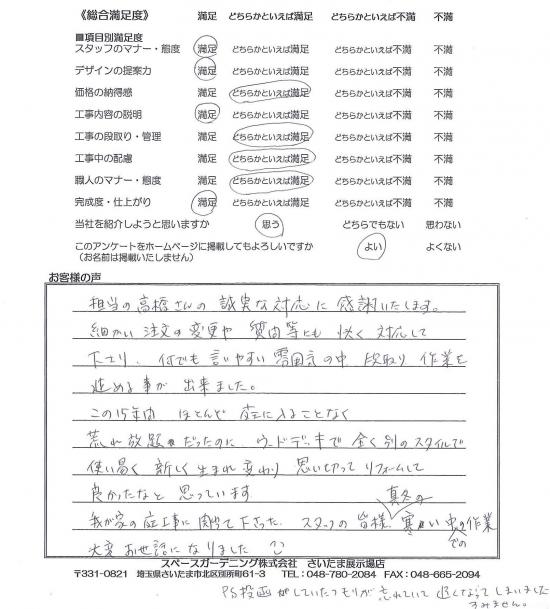 《総合満足度》 満足 どちらかといえば満足 どちらかといえば不満 不満
■項目別満足度
スタッフのマナー・態度 満足 どちらかといえば満足 どちらかといえば不満 不満
デザインの提案力 満足 どちらかといえば満足 どちらかといえば不満 不満
価格の納得感 満足 どちらかといえば満足 どちらかといえば不満 不満
工事内容の説明 満足 どちらかといえば満足 どちらかといえば不満 不満
工事の段取り・管理 満足 どちらかといえば満足 どちらかといえば不満 不満
工事中の配慮 満足 どちらかといえば満足 どちらかといえば不満 不満
職人のマナー・態度 満足 どちらかといえば満足 どちらかといえば不満 不満
完成度・仕上がり 満足 どちらかといえば満足 どちらかといえば不満 不満
当社を紹介しようと思いますか 思う どちらでもない 思わない
このアンケートをホームページに掲載してもよろしいですか よい よくない
(お名前は掲載いたしません)
お客様の声
担当の高橋さんの 誠実な対応に 感謝いたします。
細かい注文の変更や 質問等にも 快く 対応して
下さり、何でも言いやすい 雰囲気の中 段取り 作業を
進める事が 出来ました。
この15年間 ほとんど 庭に入ることなく
荒れ放題だったのに ウッドデッキで 全く別のスタイルで
使い易く 新しく 生まれ変わり 思い切って リフォームして
良かったなと 思っています
我が家の庭工事に 関って下さった スタッフの皆様 真冬の寒い中での作業
大変 お世話になりました
スペースガーデニング株式会社 さいたま展示場店
〒331-0821 埼玉県さいたま市北区別所町61-3 TEL:048-780-2084 FAX:048-665-2094
PS 投函がしていたつもりが 忘れていて 遅くなってしまいました
すみません。